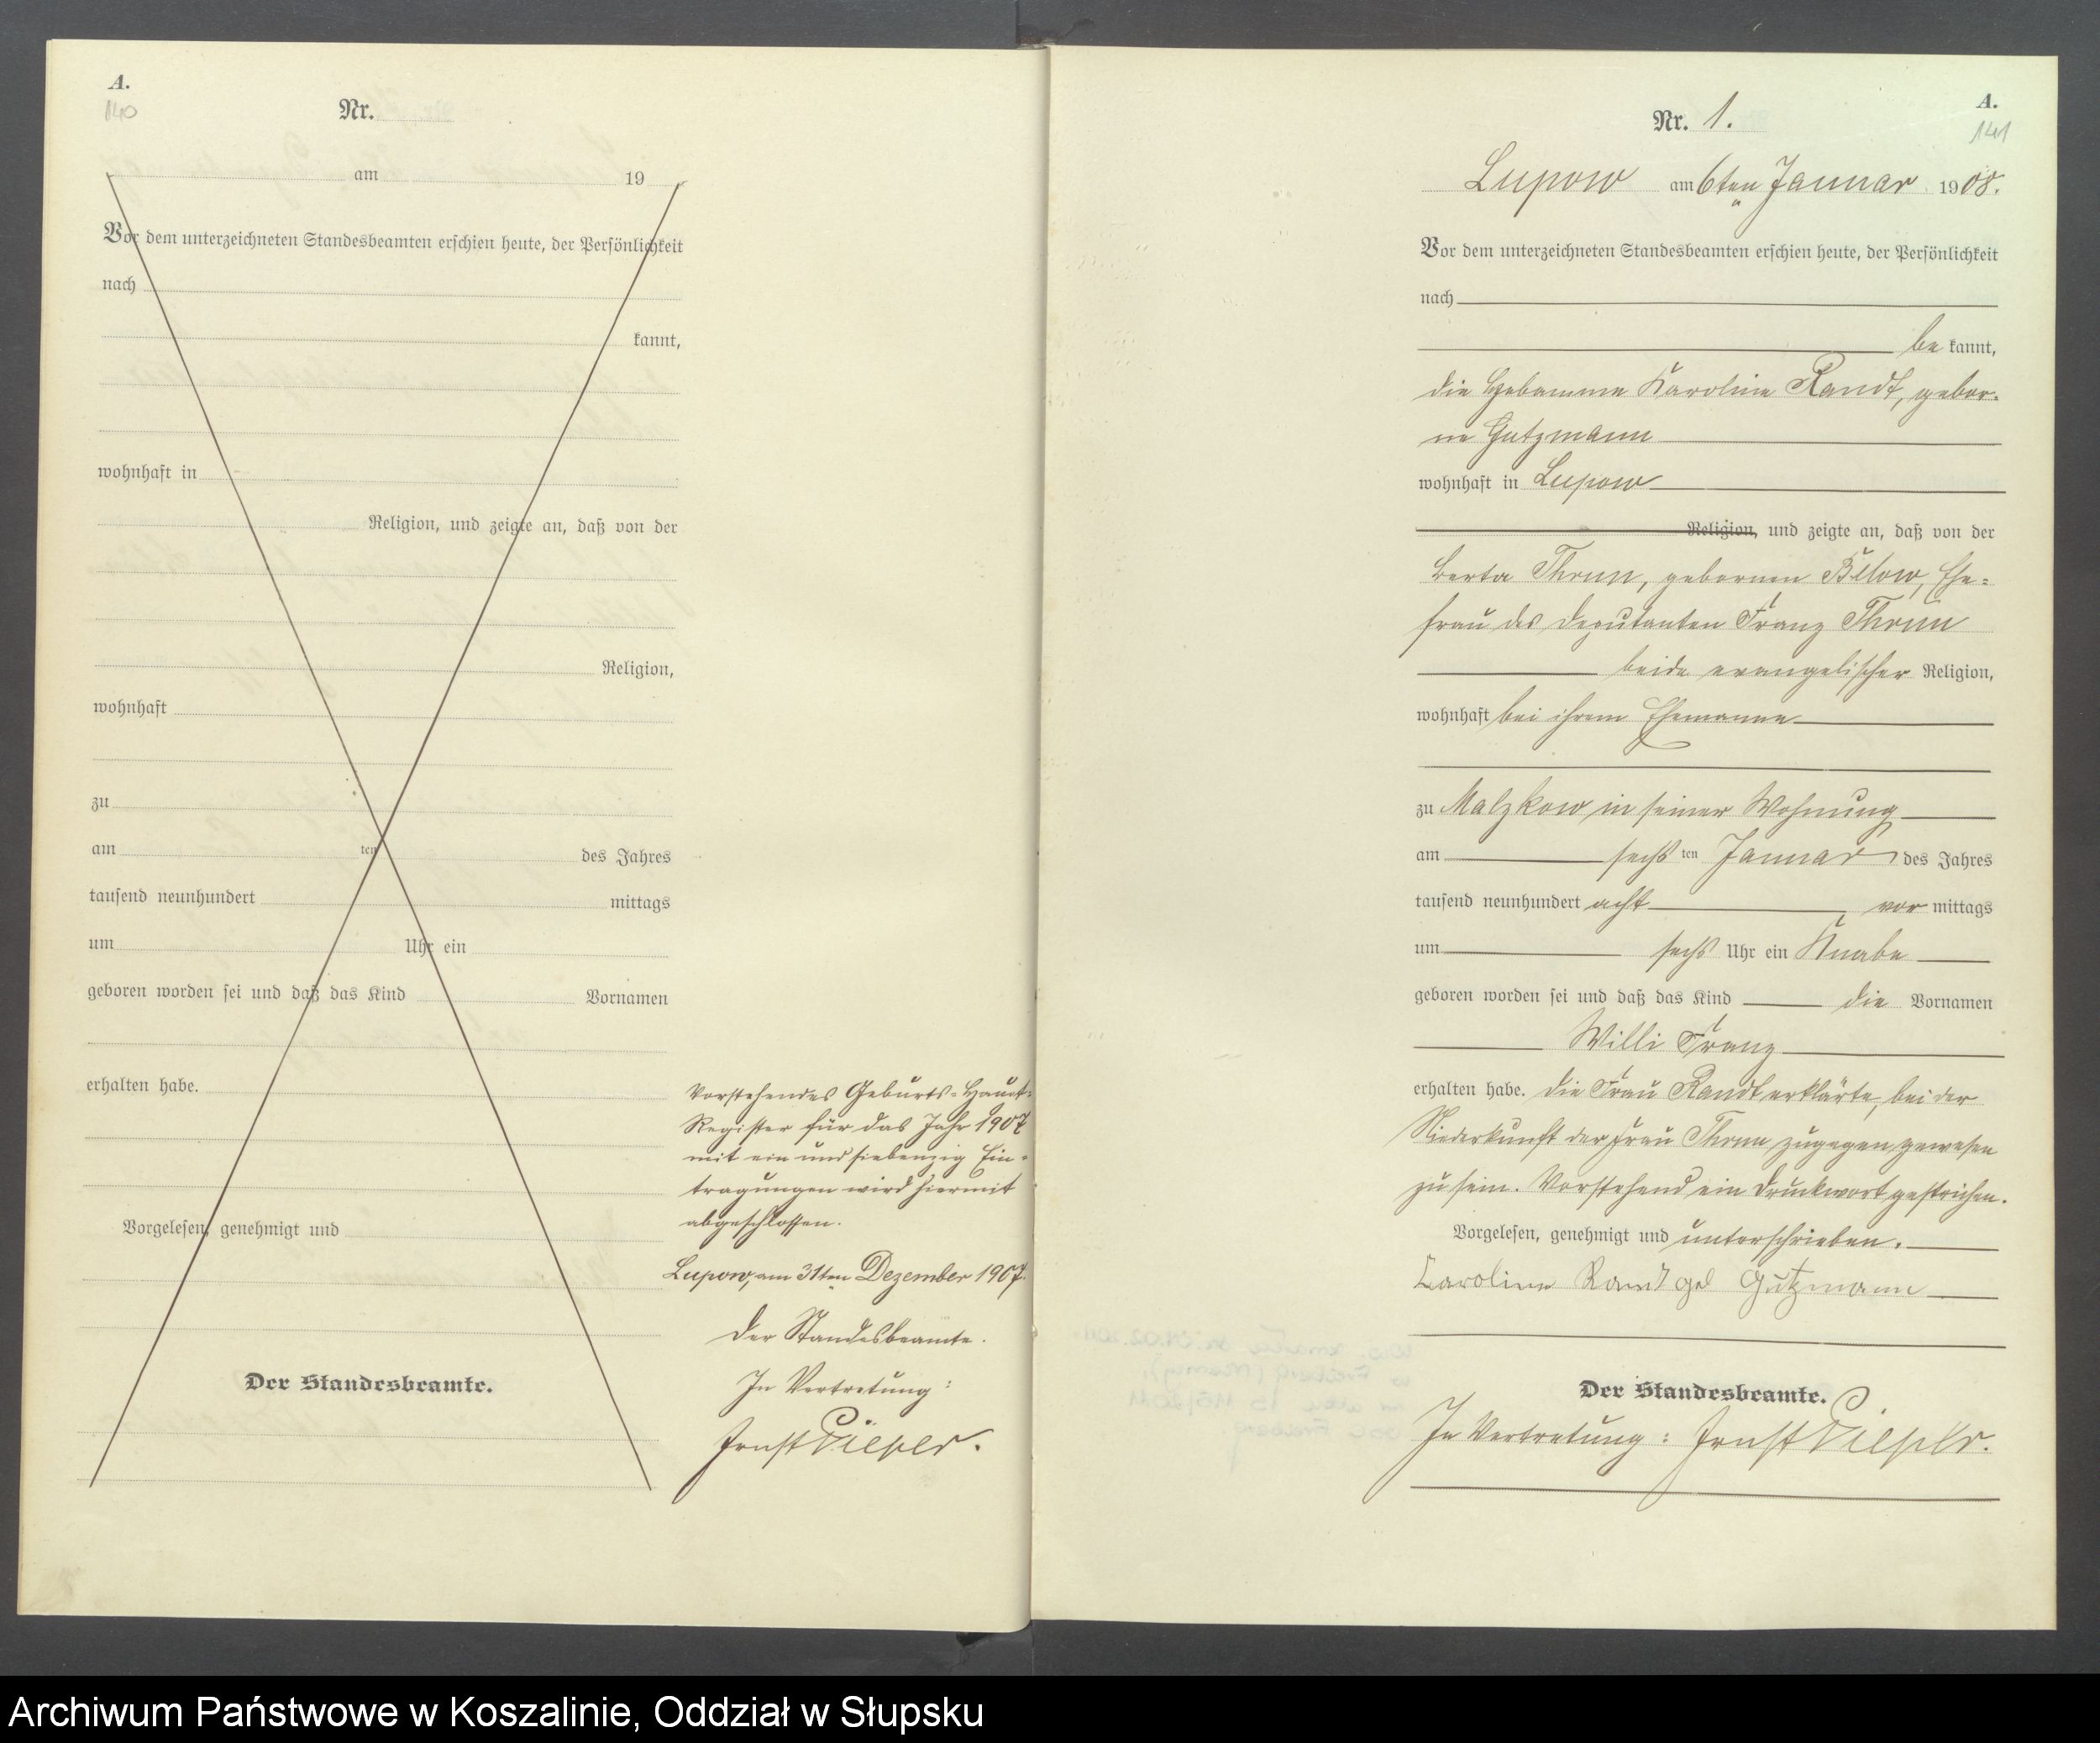 A.
140
Nr.
am 19
Vor dem unterzeichneten Standesbeamten erschien heute, der Persönlichkeit
nach
kannt,
wohnhaft in
Religion, und zeigte an, daß von der
Religion,
wohnhaft
zu
am ten des Jahres
tausend neunhundert mittags
um Uhr ein
geboren worden sei und daß das Kind Vornamen
erhalten habe.
Vorgelesen, genehmigt und
Der Standesbeamte.
Vorstehendes Geburts-Haupt-
Register für das Jahr 1907
mit ein und siebenzig Ein-
tragungen wird hiermit
abgeschlossen.
Lupow, am 31ten Dezember 1907.
Der Standesbeamte.
In Vertretung:
Ernst Pieper.
A.
141
Nr. 1.
Lupow am 6ten Januar 1908.
Vor dem unterzeichneten Standesbeamten erschien heute, der Persönlichkeit
nach
be kannt,
die Hebamme Karoline Randt, gebor-
ne Gutzmann
wohnhaft in Lupow
Religion, und zeigte an, daß von der
Berta Thrun, gebornen Bilow, Ehe-
frau des Deputanten Franz Thrun
beide evangelischer Religion,
wohnhaft bei ihrem Ehemanne
zu Malzkow in seiner Wohnung
am sechs ten Januar des Jahres
tausend neunhundert acht vor mittags
um sechs Uhr ein Knabe
geboren worden sei und daß das Kind die Vornamen
Willi Franz
erhalten habe. Die Frau Randt erklärte, bei der
Niederkunft der Frau Thrun zugegen gewesen
zu sein. Vorstehend ein Druckwort gestrichen.
Vorgelesen, genehmigt und unterschrieben.
Caroline Randt geb Gutzmann
Der Standesbeamte.
In Vertretung: Ernst Pieper.
Archiwum Państwowe w Koszalinie, Oddział w Słupsku